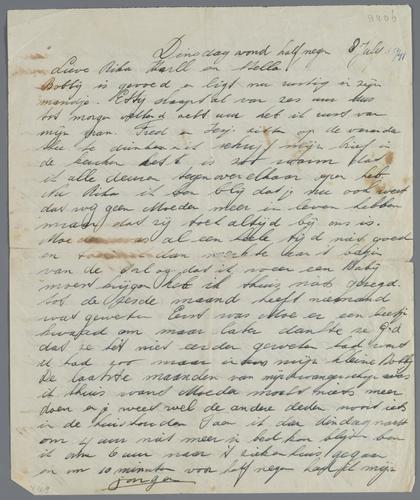 Dinsdagavond half negen 8 Juli
Lieve Rika Karll en Hella.
Bobby is gevoed en ligt nu rustig in zijn
mandje. Kitty slaapt al van zes uur dus
tot morgen ochtend acht uur heb ik rust van
mijn man. Fred en zitten op de waranda
thee te drinken en ik schrijf mijn brief in
de keuken het is zoo warm dat
ik alle deuren tegenover elkaar open heb.
Nu Rika ik ben blij dat je nu ook weet
dat wij geen Moeder meer in leven hebben
maar dat zij toch altijd bij ons is.
Moeder was al een heele tijd niet goed
en toen dan merkte aan 't begin
van de oorlog dat ik weer een Baby
moest krijgen heb ik thuis niets gezegd.
tot de zesde maand heeft niemand
wat geweten Eerst was Moe er een beetje
kwaad om maar later dankte ze God
dat ze het niet eerder geweten had want
ik had zoo maar in mijn kleine Bobby
De laatste maanden van mijn zwangerschap was
ik thuis want Moeder mocht niets meer
doen en je weet wel de andere deden nooit iets
in de huishouden Toen ik dan dinsdagnacht
om 4 uur niet meer in bed kon blijven ben
ik om 6 uur naar 't ziekenhuis gegaan
en om 10 minuten voor half negen heeft mijn
jongen